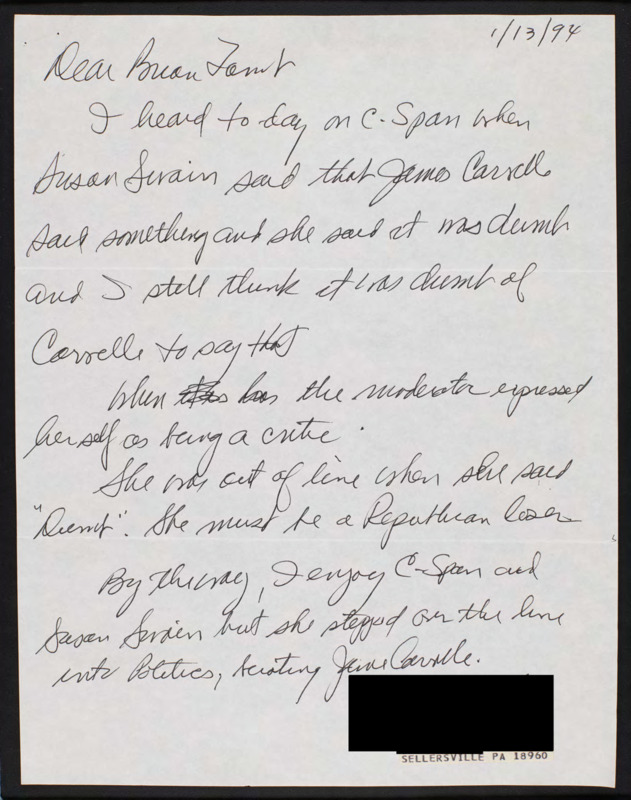 1/13/94
Dear Brian Lamb
I heard to day on C-Span when
Susan Swain said that James Carvelle
said something and she said it was dumb
and I still think it was dumb of
Carvelle to say that
When has the moderator expressed
herself as being a critic.
She was out of line when she said
"Dumb". She must be a Republican loser
By the way, I enjoy C-Span and
Susan Swain but she stepped over the line
into Politics, berating James Carvelle.
SELLERSVILLE PA 18960